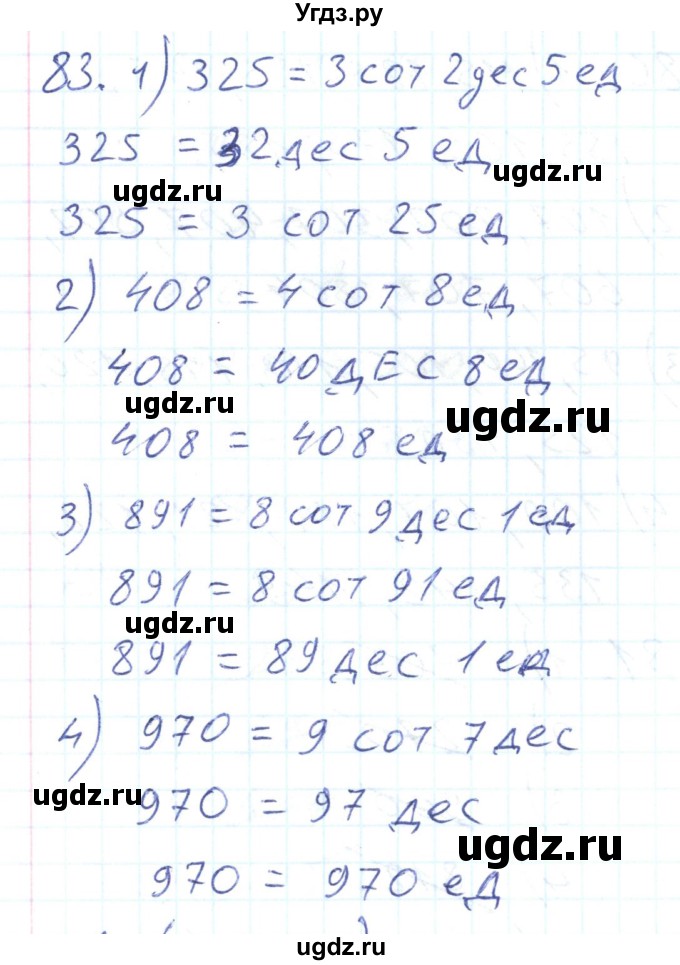 Угдз.ру
83. 1) 325 = 3 сот 2 дес 5 ед
325 = 32 дес 5 ед
ugdz.ru ugdz.ru
325 = 3 сот 25 ед
2) 408 = 4 сот 8 ед
408 = 40 ДЕС 8 ед
ugdz.ru ugdz.ru
408 = 408 ед
3) 891 = 8 сот 9 дес 1 ед
891 = 8 сот 91 ед
ugdz.ru ugdz.ru
891 = 89 дес 1 ед
4) 970 = 9 сот 7 дес
ugdz.ru
970 = 97 дес
ugdz.ru
970 = 970 ед
ugdz.ru